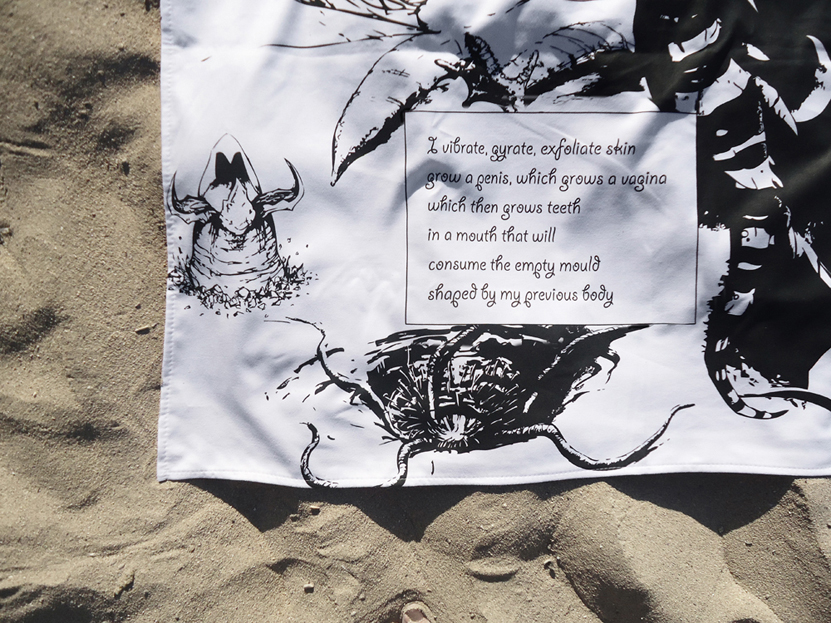 I vibrate, gyrate, exfoliate skin
grow a penis, which grows a vagina
which then grows teeth
in a mouth that will
consume the empty mould
shaped by my previous body